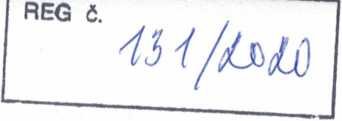 REG č.
131/2020